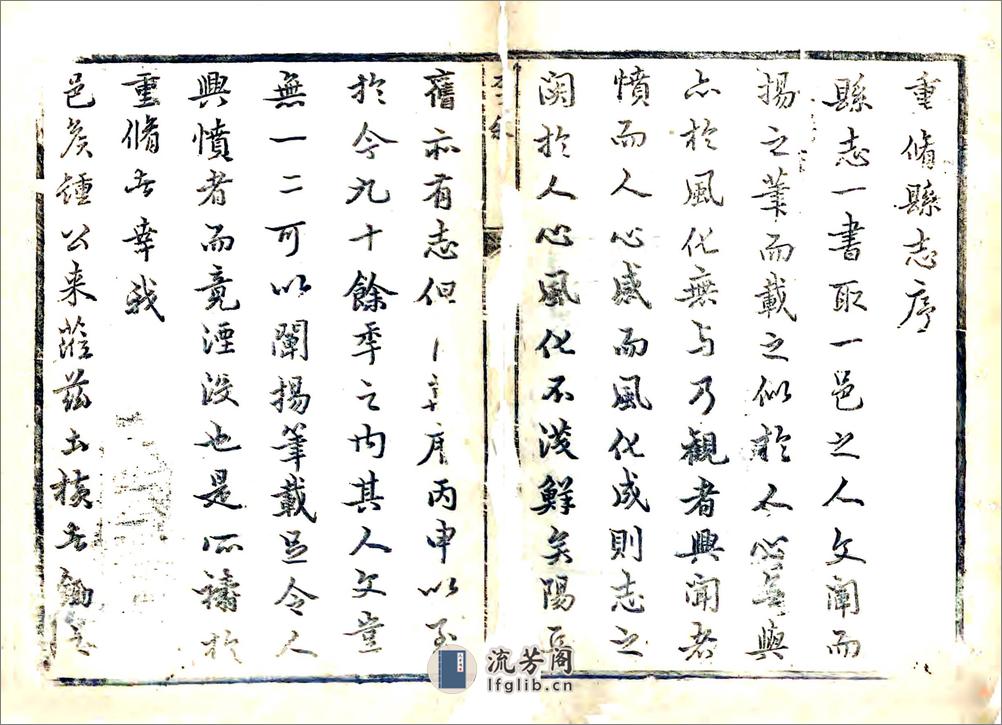 重脩縣志序
縣志一書取一邑之人文闡而
揚之筆而載之似於人心無與
亦於風化無与乃觀者興聞者
憤而人心感而風化成則志之
闗於人心風化不淺鮮矣陽
舊亦有志但 丙申以至
於今九十餘季之内其人文豈
無一二可以闡揚筆載足令人
興憤者而竟湮没也是所禱於
重脩者幸我
邑矦鍾公来蒞兹土
流芳阁
lfglib.cn